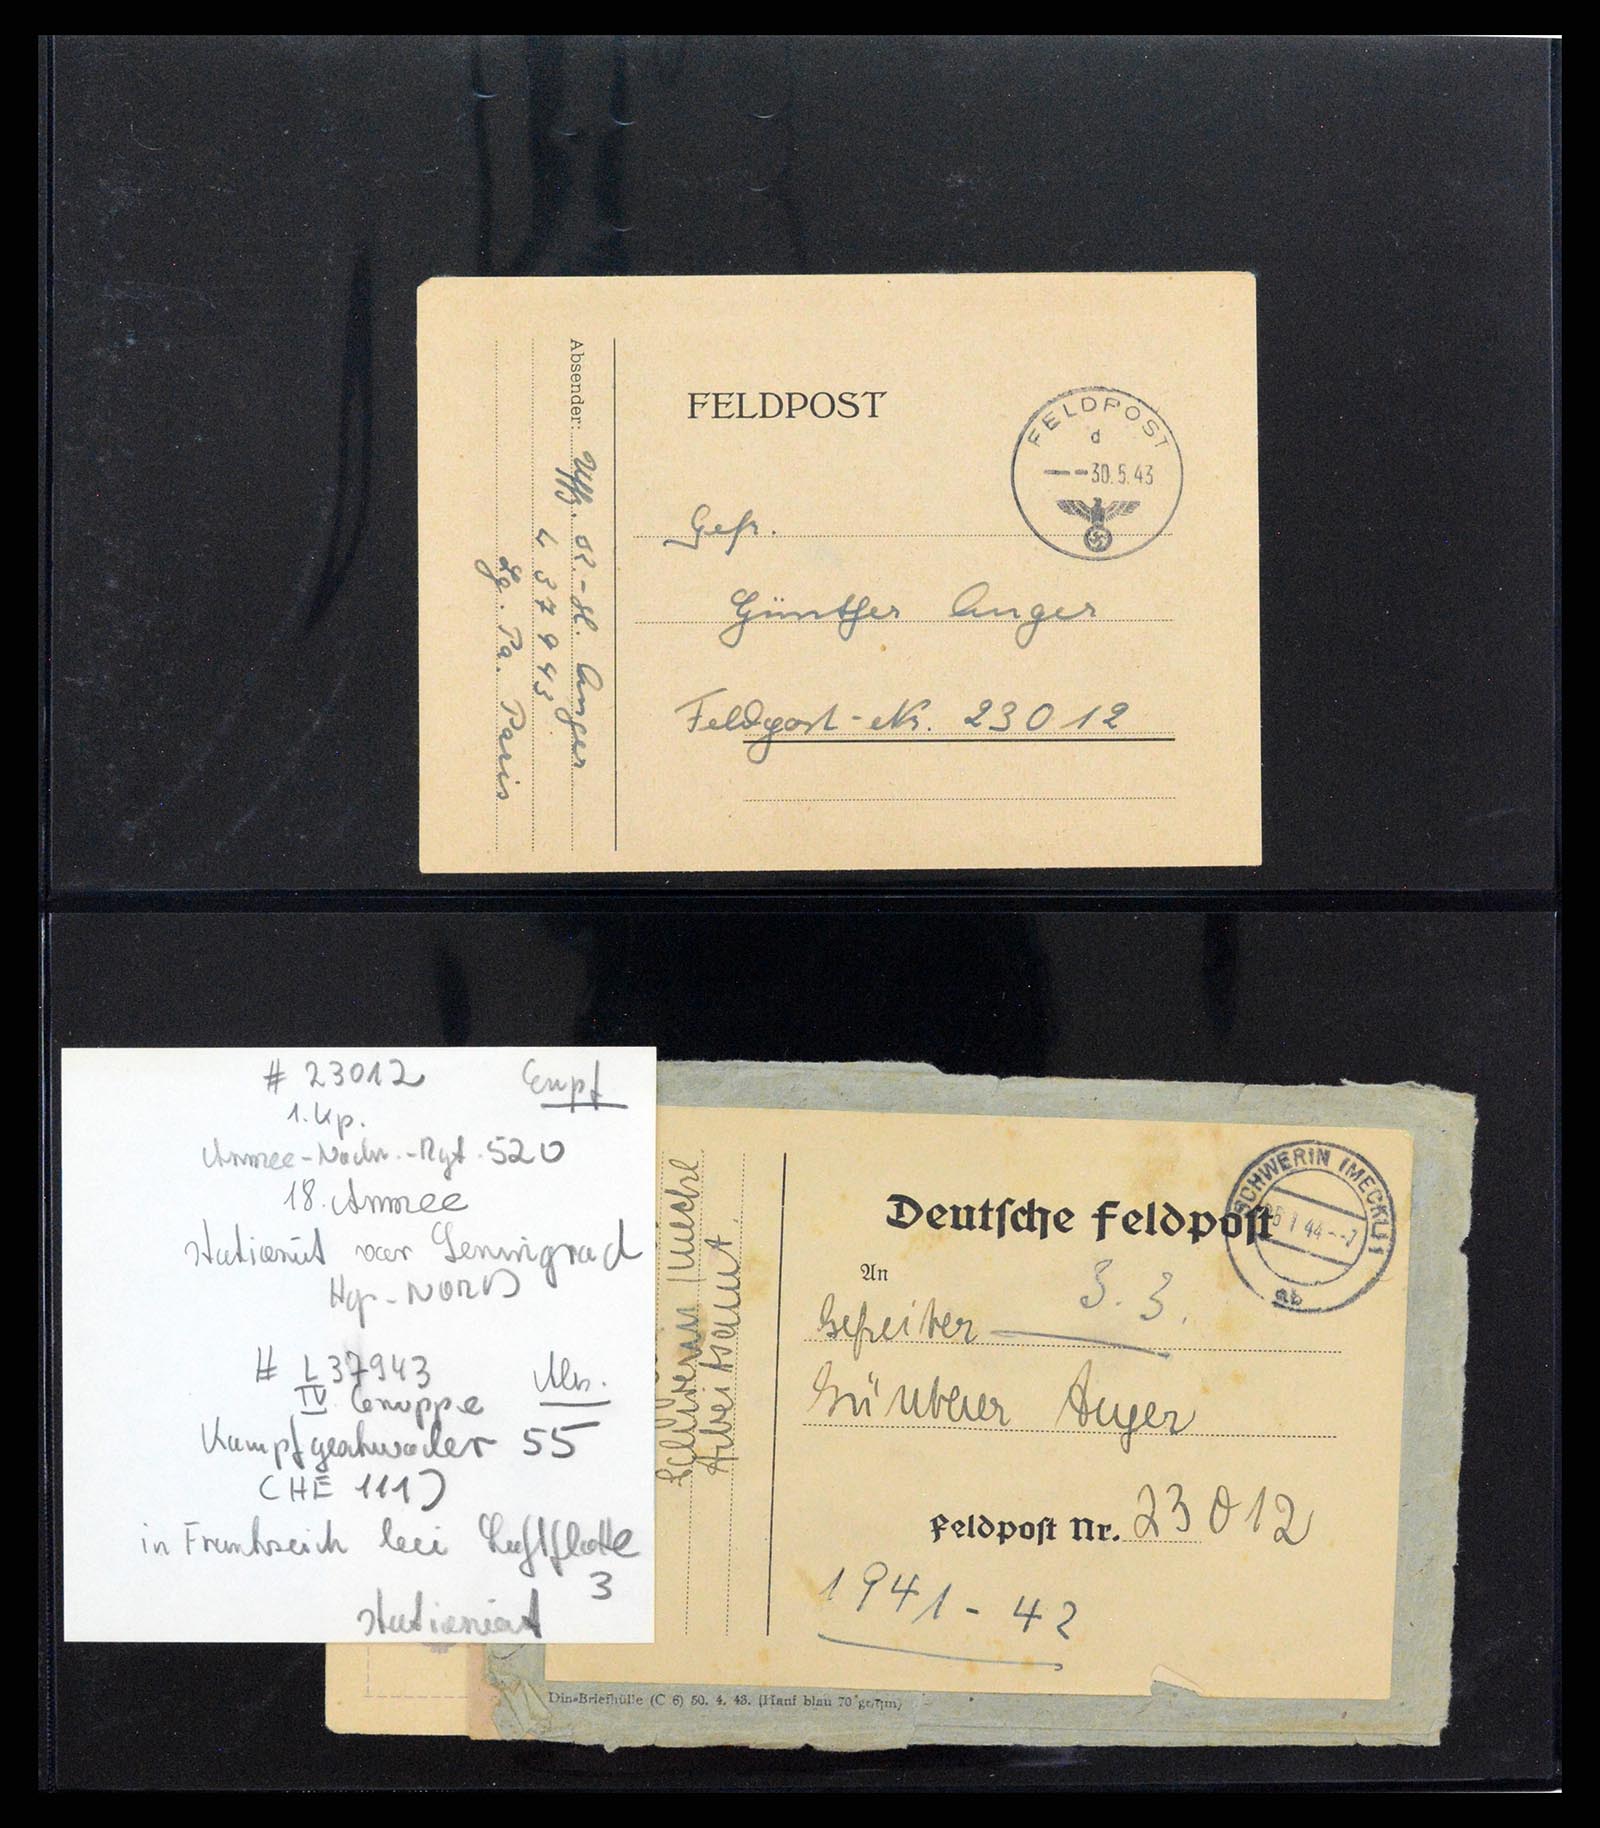 FELDPOST
FELDPOST
d
30.5.43
Gefr.
Günther Anger
Feldpost-Nr. 23012
Absender: Uffz. K.-H. Anger
L 37943
Lg. Pa. Paris
# 23012 Empf
1. Kp.
Armee-Nachr.-Rgt. 520
18. Armee
stationiert vor Leningrad
Hgr. NORD
# L 37943 Abs.
IV Gruppe
Kampfgeschwader 55
(HE 111)
in Frankreich bei Luftflotte
3
stationiert
Schwerin /Meckl
Arbeitsamt
Deutsche Feldpost
SCHWERIN (MECKL) 1
1 44 - 7
ab
An
3. 3.
Gefreiter
Günther Anger
Feldpost Nr. 23012
1941 - 42
Din-Briefhülle (C 6) 50. 4. 43. (Hanf blau 70 gr/qm)